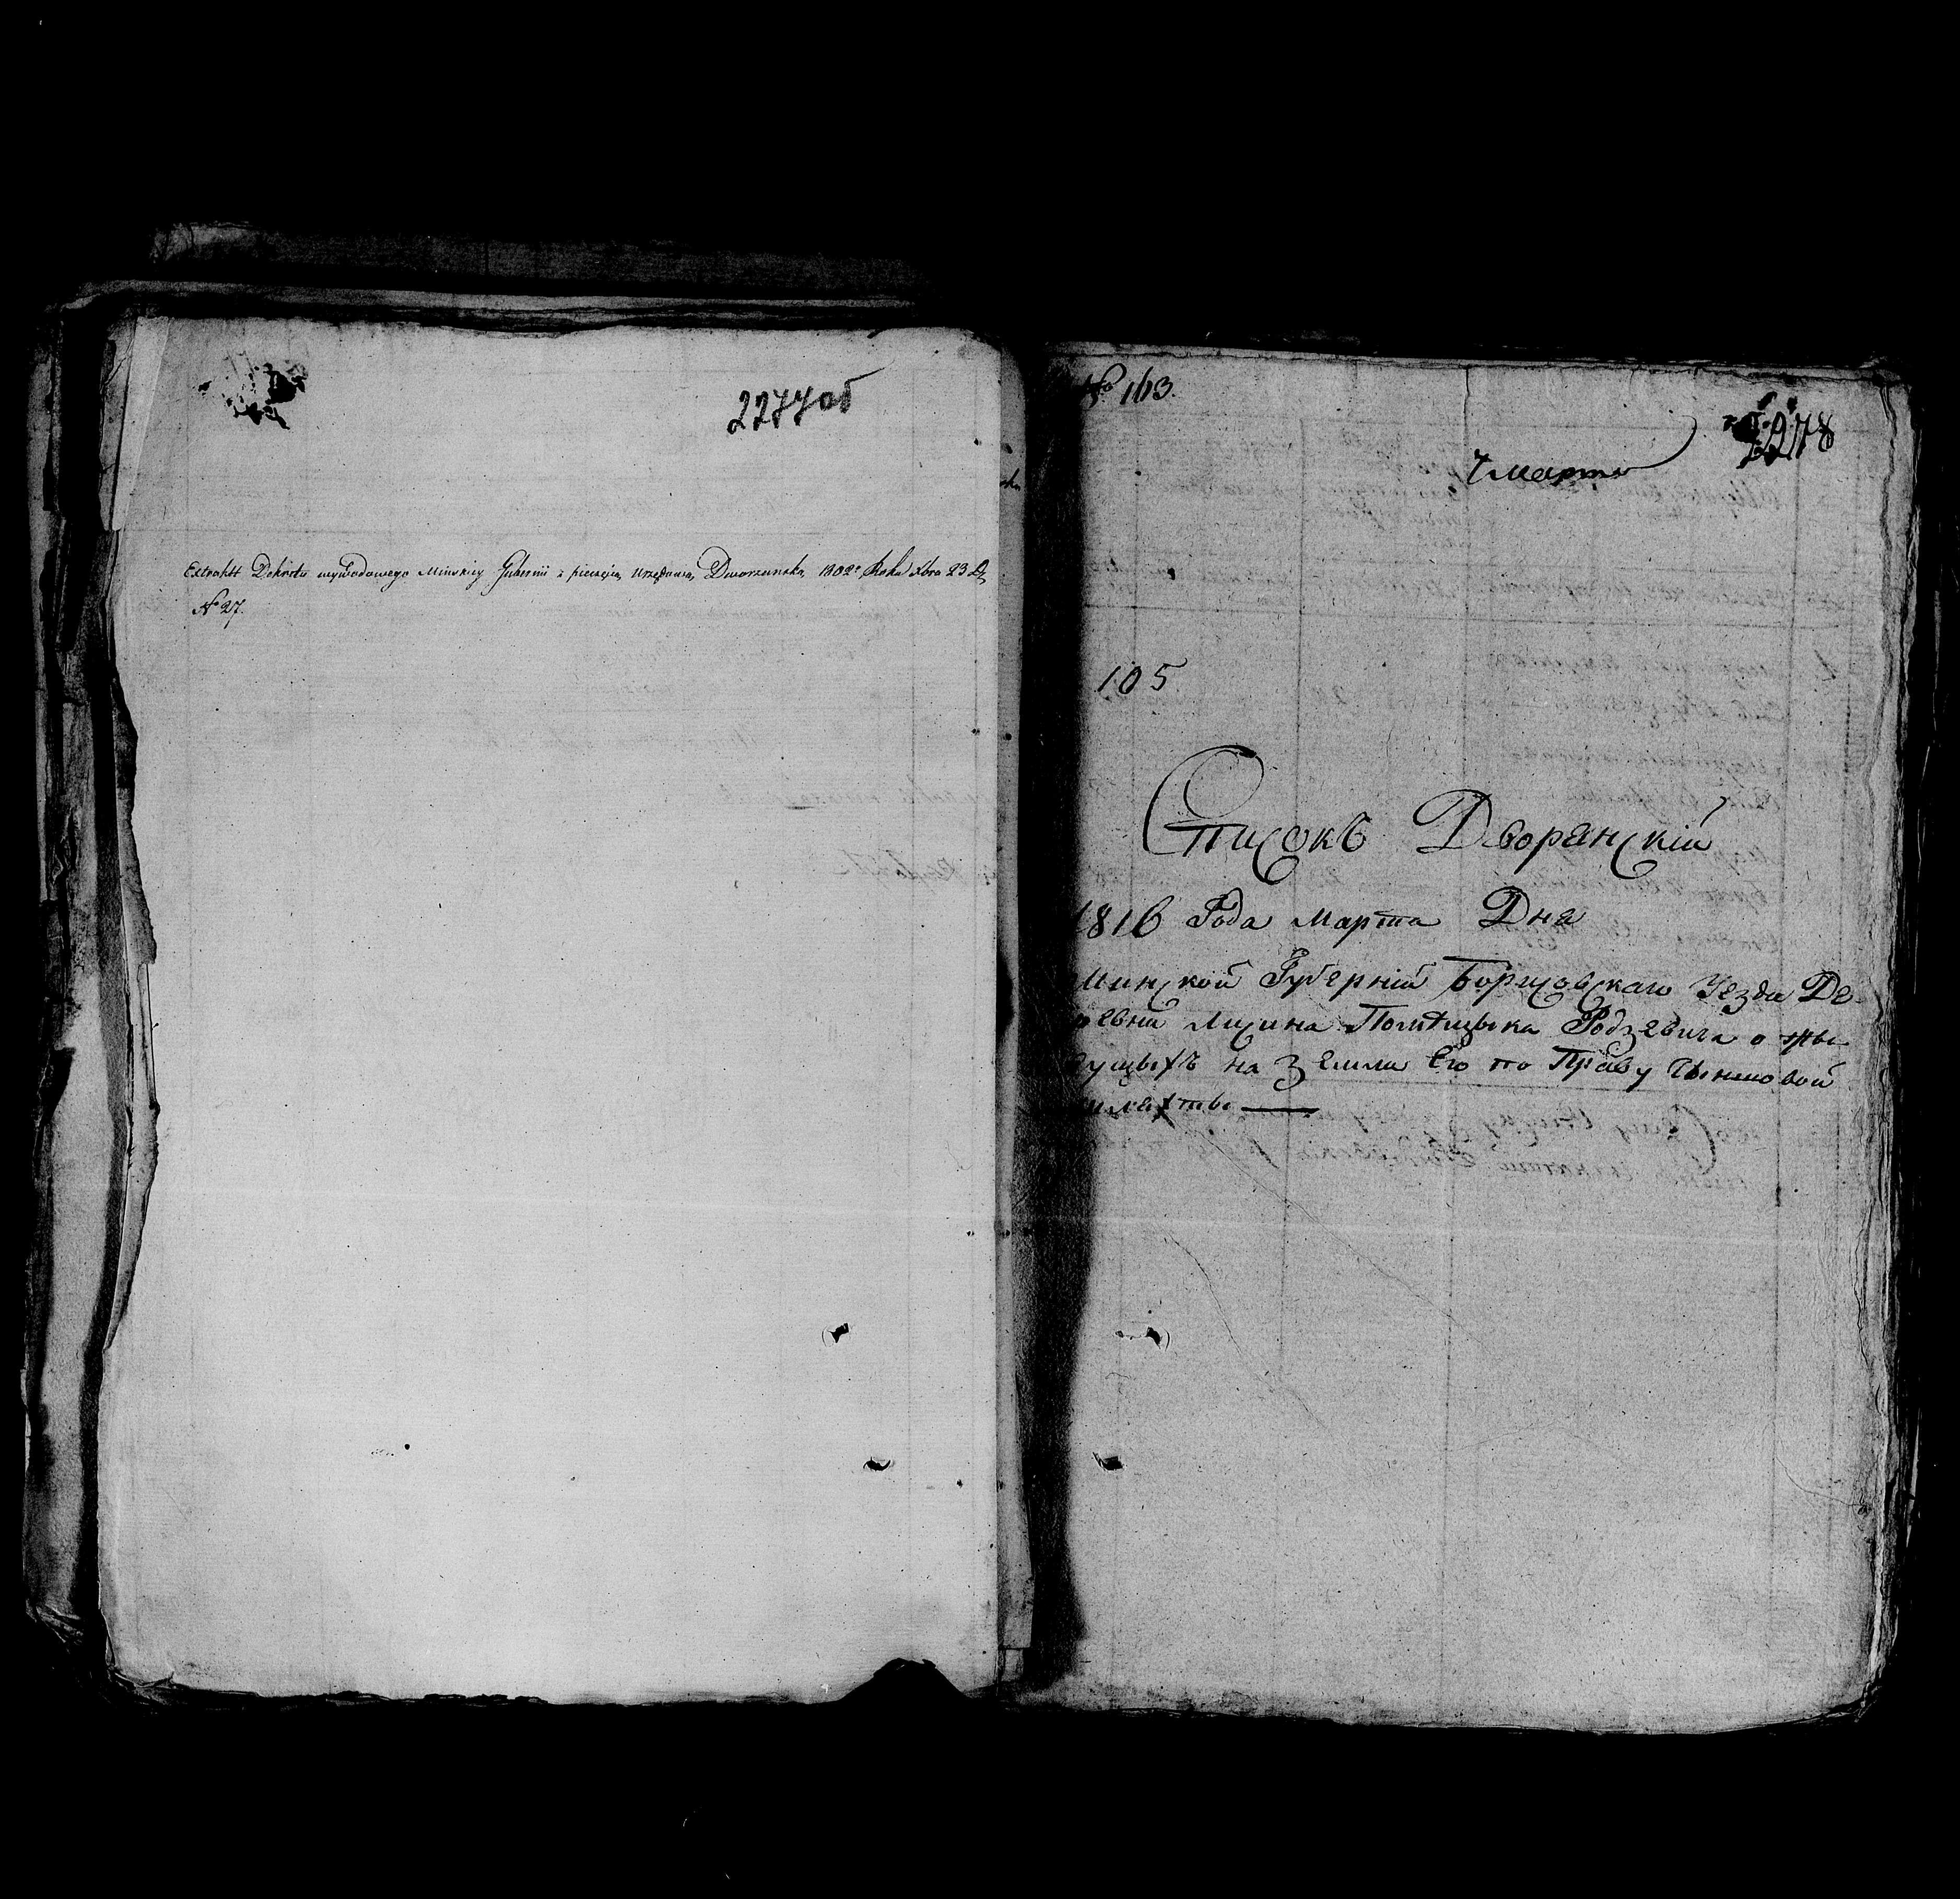 2277об
Extrakt Dekretu wywodowego Minskiey Gubernii z pieczęcią Urzędową Dworzanską 1802º Roku Xbra 23 D.
№ 27.
№ 163.
2278
7 марта
105
Списокъ Дворянскій
1816 Года Марта Дня
Минской Губерній Борисовскаго Уезда Де-
ревни Лисина Родзевича о жы-
вущыхъ на Земли Его по Праву Чыншовой
шляхты